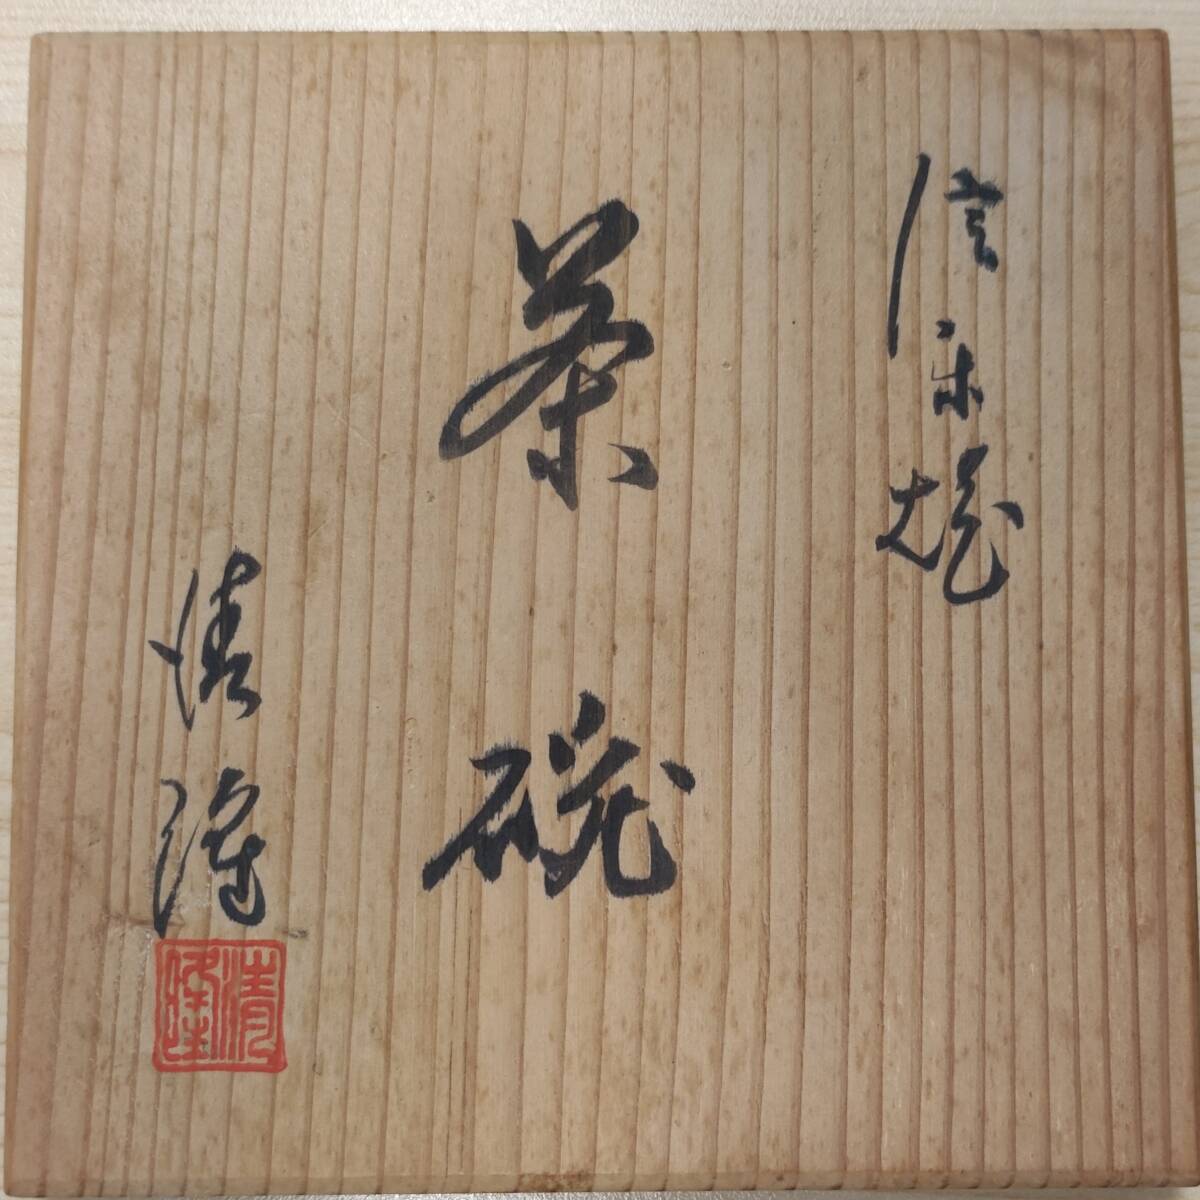 信楽焼
茶碗
清隆
清隆